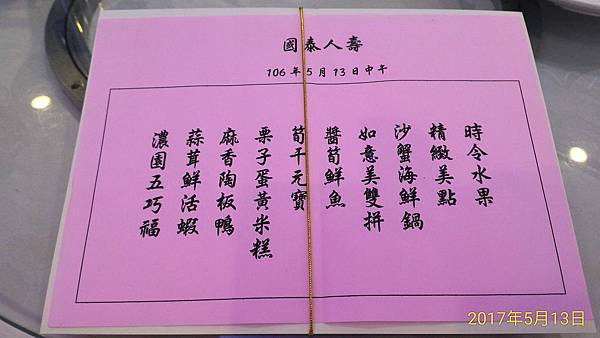 國泰人壽
106年5月13日中午
濃園五巧福
蒜茸鮮活蝦
麻香陶板鴨
栗子蛋黃米糕
筍干元寶
醬筍鮮魚
如意美雙拼
沙蟹海鮮鍋
精緻美點
時令水果
2017年5月13日